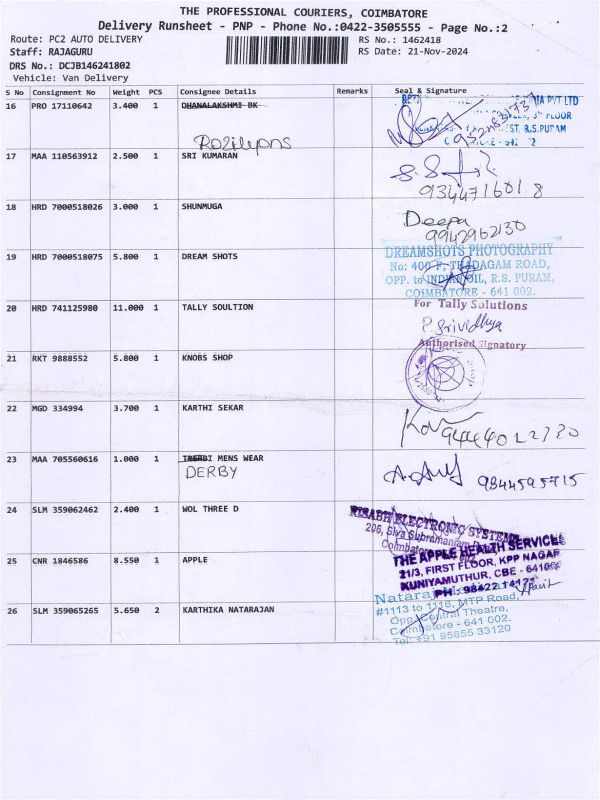 THE PROFESSIONAL COURIERS, COIMBATORE
Delivery Runsheet - PNP - Phone No.:0422-3505555 - Page No.:2
Route: PC2 AUTO DELIVERY RS No.: 1462418
Staff: RAJAGURU RS Date: 21-Nov-2024
DRS No.: DCJB146241802
Vehicle: Van Delivery
S No Consignment No Weight PCS Consignee Details Remarks Seal & Signature
16 PRO 17110642 3.400 1 DHANALAKSHMI BK
PVT LTD
FLOOR
R.S.PURAM
17 MAA 110563912 2.500 1 SRI KUMARAN
934471601 8
18 HRD 7000518026 3.000 1 SHUNMUGA Deepa
9942962130
19 HRD 7000518075 5.800 1 DREAM SHOTS DREAMSHOTS PHOTOGRAPHY
No: 400 F, THADAGAM ROAD,
OPP. to INDIAN OIL, R.S. PURAM,
COIMBATORE - 641 002.
20 HRD 741125980 11.000 1 TALLY SOULTION For Tally Solutions
P. Srividhya
Authorised Signatory
21 RKT 9888552 5.800 1 KNOBS SHOP
22 MGD 334994 3.700 1 KARTHI SEKAR
23 MAA 705560616 1.000 1 MENS WEAR
DERBY 9844595715
24 SLM 359062462 2.400 1 WOL THREE D RISABH ELECTRONIC SYSTEMS
206, Siva Subramaniam
25 CNR 1846586 8.550 1 APPLE THE APPLE HEALTH SERVICE
21/3, FIRST FLOOR, KPP NAGAR
KUNIYAMUTHUR, CBE -
PH: 98422
26 SLM 359065265 5.650 2 KARTHIKA NATARAJAN
#1113 to 1116, MTP Road,
Opp. Central Theatre,
Coimbatore - 641 002.
Tel: +91 95855 33120